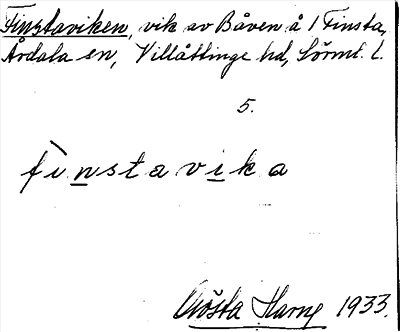 Finstaviken, vik av Båven å 1 Finsta,
Årdala sn, Villåttinge hd, Sörml. l.
5.
fìnstavika
Gösta Harne 1933.